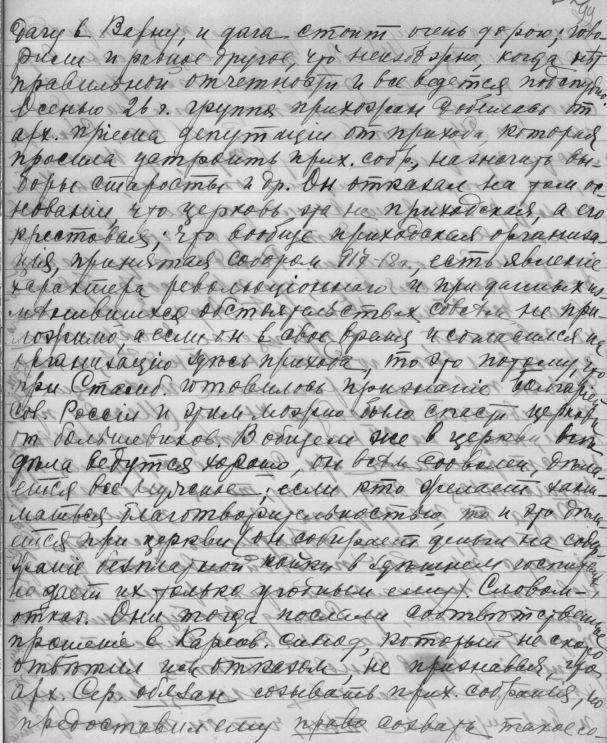 дачу в Варну, и дача стоит очень дорого; гово-
рили и разное другое, что неизбежно, когда нѣт
правильной отчетности и все ведется
Осенью 26 г. группа прихожан добилась от
арх. пріема депутаціи от прихода, которая
просила устроить прих. собр., назначить вы-
боры старосты и др. Он отказал на том ос-
новании, что церковь эта не приходская, а его
крестовая, что вообще приходская организа-
ція, принятая собором 917-18 г., есть явленіе
характера революціоннаго и при данных из-
мѣнившихся обстоятельствах совсѣм не при-
ложимо, а если он в свое время и согласился на
организацію здѣсь прихода, то это потому, что
при Стамб. готовилось признаніе Болгаріей
сов. Россіи и этим можно было спасти церковь
от большевиков. В общем же в церкви всѣ
дѣла ведутся хорошо, он всѣм доволен, дѣла-
ется все лучшее; если кто желает зани-
маться благотворительностью, то и это дѣла-
ется при церкви (он собирает деньги на содер-
жаніе безплатной койки в здѣшнем госпитале,
но дает их только угодным ему). Словом-
отказ. Они тогда послали соотвѣтственное
прошеніе в Карлов. синод, который не скоро
отвѣтил им отказом, не признавая, что
арх. Сер. обязан созывать прих. собранія, но
предоставил ему право созвать такое со-